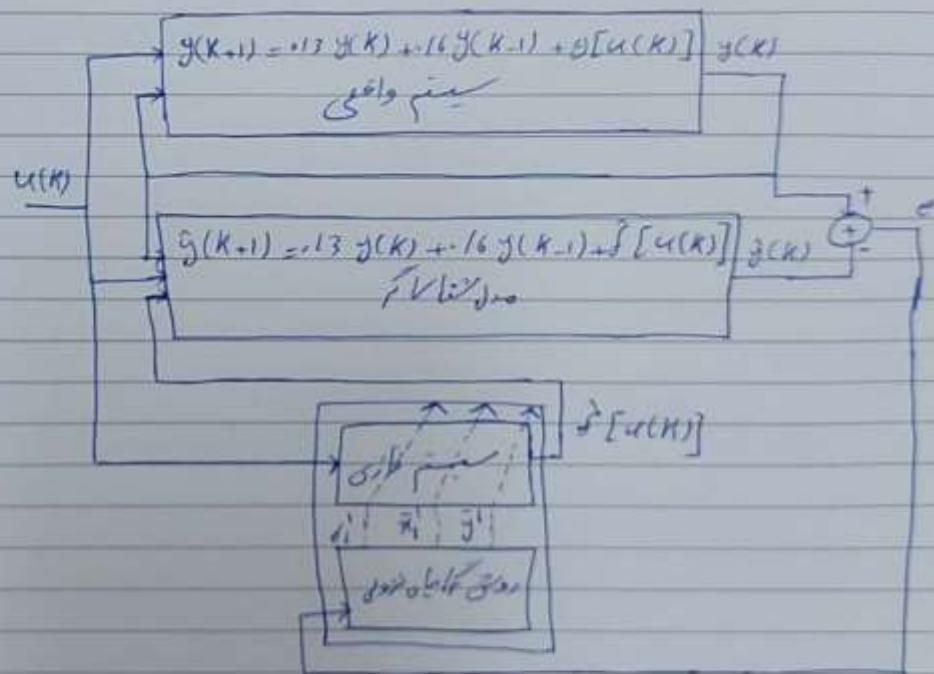 y(K+1) = .13 y(K) + .16 y(K-1) + g[u(K)]
y(K)
سیستم واقعی
u(K)
+
e
ŷ(K+1) = .13 y(K) + .16 y(K-1) + f̂[u(K)]
ŷ(K)
-
مدل شناساگر
f̂[u(K)]
سیستم فازی
x̄ᵢˡ ȳˡ
روش گرادیان نزولی